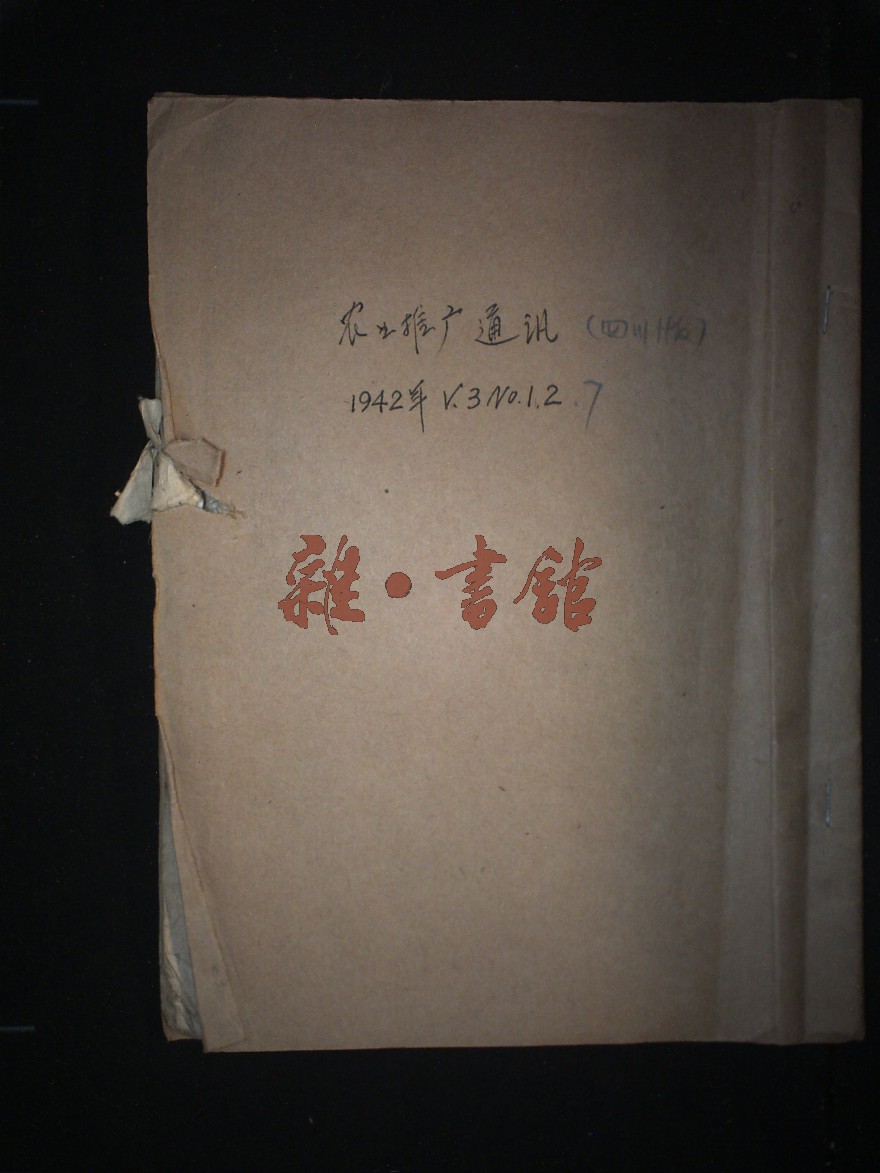 农业推广通讯（四川
1942年 V.3 No.1.2.7
雜·書館